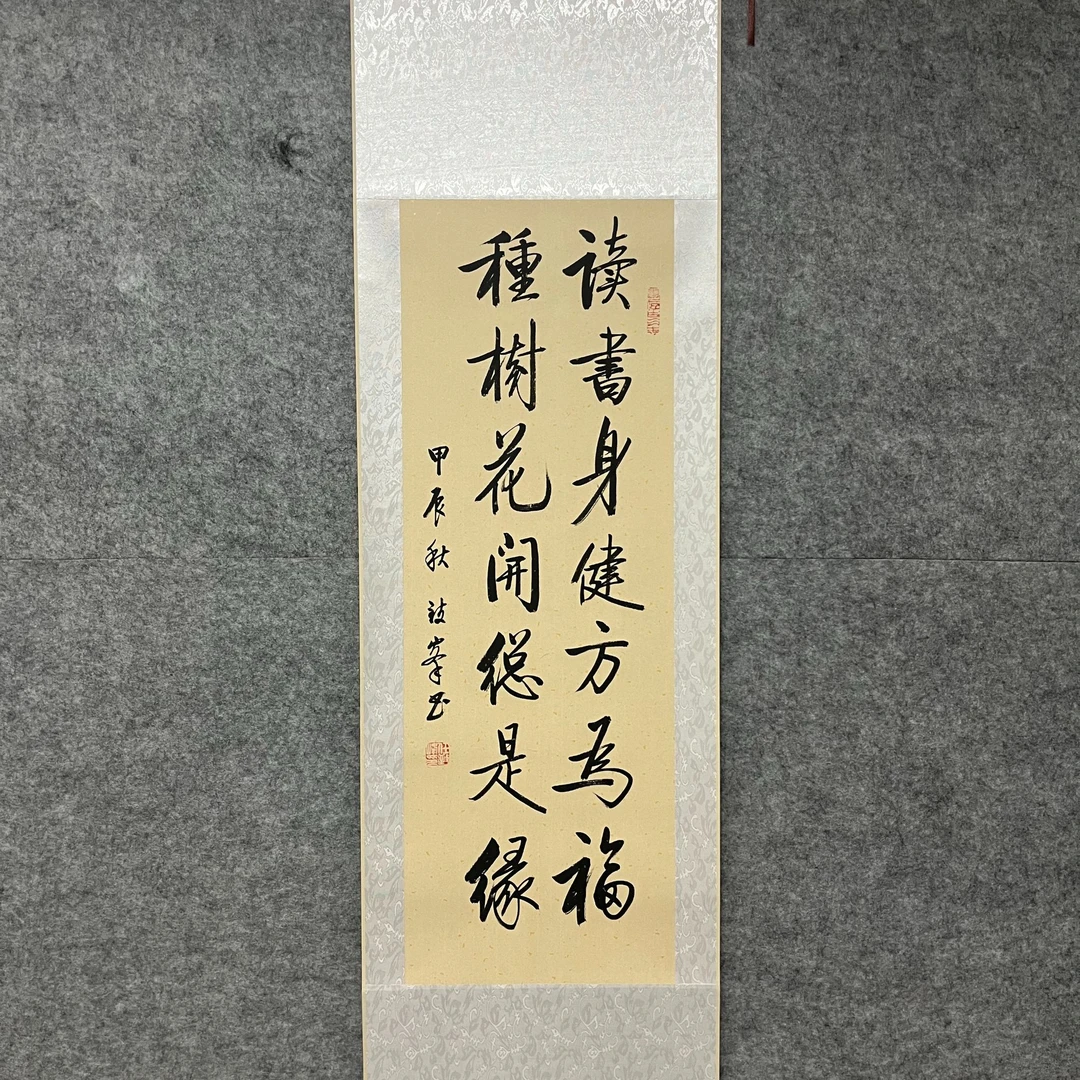 读書身健方為福
種樹花開總是緣
甲辰秋 峯书